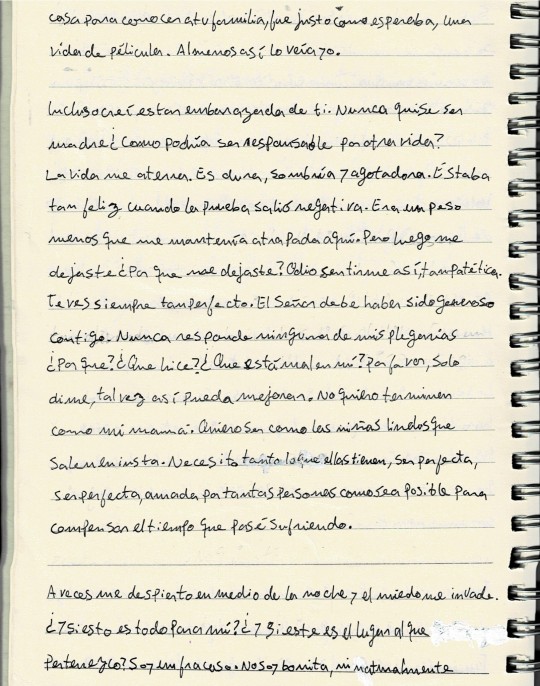 casa para conocer a tu familia, fue justo como esperaba, una
vida de película. Al menos así lo veía yo.
Incluso creí estar embarazada de ti. Nunca quise ser
madre ¿Como podría ser responsable por otra vida?
La vida me aterra. Es dura, sombría y agotadora. Estaba
tan feliz cuando la prueba salió negativa. Era un peso
menos que me mantenía atrapada aquí. Pero luego me
dejaste ¿Por que me dejaste? Odio sentirme así, tan patética.
Te ves siempre tan perfecto. El Señor debe haber sido generoso
contigo. Nunca responde ninguna de mis plegarias
¿Por que? ¿Que hice? ¿Que está mal en mi? Por favor, solo
dime, tal vez así pueda mejorar. No quiero terminar
como mi mamá. Quiero ser como las niñas lindas que
salen en insta. Necesito tanto lo que ellas tienen, ser perfecta,
ser perfecta, amada por tantas personas como sea posible para
compensar el tiempo que pasé sufriendo.
A veces me despierto en medio de la noche y el miedo me invade.
¿Y si esto es todo para mi? ¿Y si este es el lugar al que
pertenezco? Soy un fracaso. No soy bonita, ni naturalmente